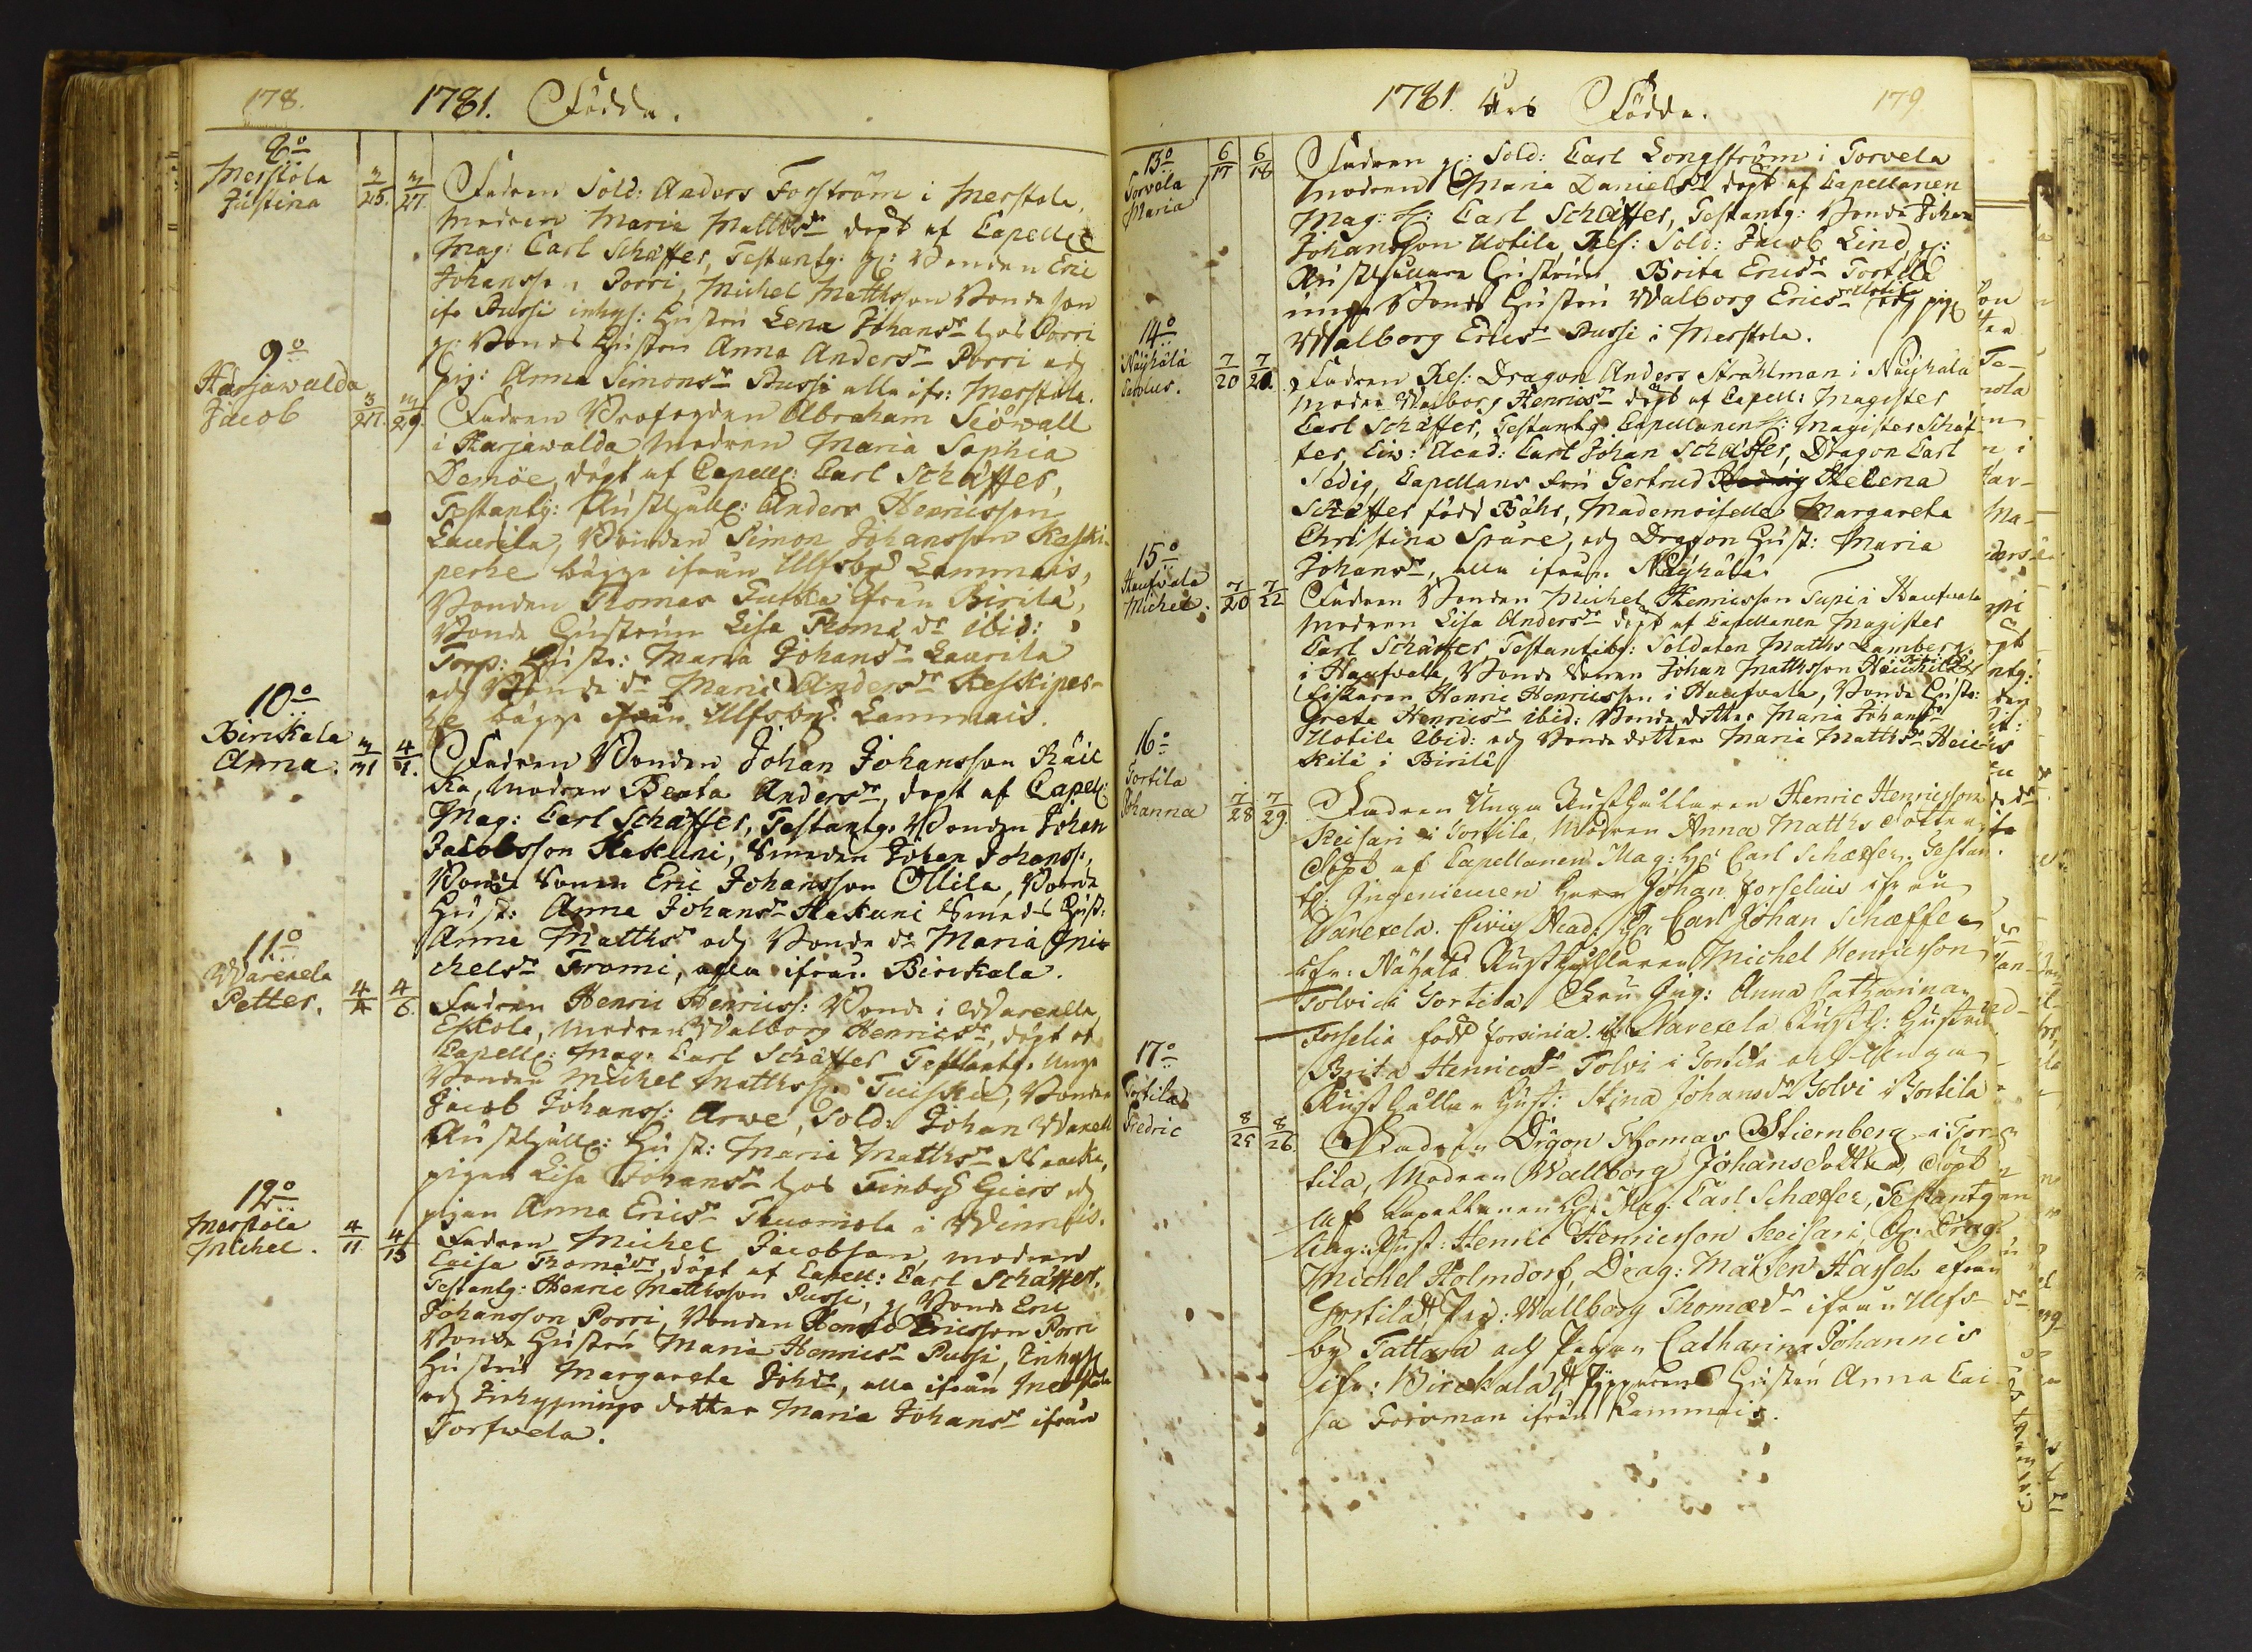 178.
1781. Födda.
8o
Merstola
Justina
3/25. 3/27.
Fadren Sold: Anders Forström i Merstola,
modren Maria Matthsdr döpt af Capell:
Mag: Carl Schæffer, Testantg: g: Bonden Eric
Johansson Porri, Michel Matthsson Bondeson
ifr. Pussi inhys: Hustru Lena Johansdr hos Porri
g: Bonds Hustru Anna Andersdr Porri och
pig: Anna Simonsdr Pussi alla ifr: Merstola.
9o
Harjawalda
Jacob
3/27. 3/29.
Fadren Profogden Abraham Siöwall
i Harjawalda, Modren Maria Sophia
Demöe, döpt af Capell: Carl Schæffer,
Testantg: Rusthåll: Anders Henricsson
Laurila, Bonden Simon Johansson Keski-
perhe bägge ifrån Ulfsby Lammais,
Bonden Thomas Jutila ifrån Birilä,
Bonde Hustrun Lisa Thomædr ibid:
Torp: Hustr: Maria Johansdr Laurila
och Bonde dr Maria Andersdr Keskiper-
he bägge ifrån Ulfsby Lammais.
10o
Birckala
Anna.
3/31 4/1.
Fadren Bonden Johan Johansson Räic
ka, Modren Beata Andersdr, döpt af Capell:
Mag: Carl Schæffer, Testantg. Bonden Johan
Jacobsson Kakuni, Smeden Johan Johanss:
Bonde Sonen Eric Johansson Ollila, Bonde
Hust: Anna Johansdr Kakuni Smeds Hust:
Anna Matthsdr och Bonde dr Maria Mi-
chelsdr Tromi, alla ifrån Birckala.
11o
Warexela
Petter.
4/4 4/6.
Fadren Henric Henricss: Bonde i Warexela
Eskola, modren Walborg Henricsdr, döpt af
Capell: Mag: Carl Schæffer Testantg. Unge
Bonden Michel Matthss: Tuisku, Bonden
Jacob Johanss: Arwe, Sold: Johan Warell
Rusthåll: Hust: Maria Matthsdr
pigan Lisa Johansdr hos Finby Giers och
pigan Anna Ericsdr Tuomola i Winnais.
12o
Merstola
Michel.
4/11 4/15
Fadren Michel Jacobsson, modren
Caisa Thomædr, döpt af Capell: Carl Schæffer.
Testantg: Henric Matthsson Pussi, g Bonde Eric
Johansson Porri, Bonden Henric Ericsson Porri
Bonde Hustru Maria Henricsdr Pussi, Inhys
Hustru Margareta Johdr, alla ifrån Merstola
och Inhysnings dotter Maria Johansdr ifrån
Torfwela.
1781. Års Födda.
179
13o
Torvela
Maria
6/17 6/18
Fadren g: Sold: Carl Longström i Torvela
modren Maria Danielsdr döpt af Capellanen
Mag: H: Carl Schæffer, Testantg: Bonde Johan
Johansson Uotila Res: Sold: Jacob Lind g:
Rusthållare Hustrun Brita Ericsdr Tortila
unga Bonde Hustru Walborg Ericsdr Uotila och pig
Walborg Ericsdr Pussi i Merstola.
14o
Näyhälä
Carolus.
7/20 7/20.
Fadren Res: Dragon Anders Stråhlman i Näyhälä
Modren Walborg Henricsdr döpt af Capell: Magister
Carl Schæffer, Testantg Capellanen H: Magister Schæf
fer, Civ: Acad: Carl Johan Schæffer, Dragon Carl
Sedig, Capellans Fru Gertrud Hedvig Helena
Schæffer född Bähr, Mademoiselle Margareta
Christina Spåre, och Dragon Hust: Maria
Johansdr, alla ifrån Näyhälä.
15o
Haufvala
Michel.
7/20 7/22
Fadren Bonden Michel Henricsson Supi i Haufvala
modren Lisa Andersdr döpt af Capellanen Magister
Carl Schæffer Testantibg: Soldaten Matths Lamberg
i Haufvala, Bonde Sonen Johan Matthsson Heickilä
Fiskaren Henric Henricsson i Haufvala, Bonde Hustr:
Greta Henricsdr ibid: Bonde dotter Maria Johansdr
Uotila ibid: och Bonde dotter Maria Matthsdr Heic-
kilä i Birilä
16o
Tortila
Johanna
7/28 7/29.
Fadren Unga Rusthållaren Henric Henricsson
Keisari i Tortila, Modren Anna Matths dotter
Döpt af Capellanen Mag: Hr Carl Schæffer. Testan
tg: Ingenieuren Herr Johan Forselius ifrån
Varexela. Civis Acad: Hr Carl Johan Schæffer
ifr: Nähälä Rusthållaren Michel Henricsson
Tolvi i Tortila Fru Ing: Anna Catharina
Forselia född Forsinia ifr Varexela Rusth: Hustru
Brita Henricsdr Tolvi i Tortila och Unga
Rusthållar Hust: Stina Johansdr Tolvi i Tortila
17o
Tortila
Fredric
8/25 8/26.
Fadren Dragon Thomas Stiernberg i Tor-
tila, Modren Wallborg Johansdotter, döpt
Af Capellanen H: Mag. Carl Schæffer, Testantg
Ung: Rust: Henric Henricsson Keisari, Gr: Drag:
Michel Holmdorf, Drag: Mårten Hassel ifrån
Tortila, Pig: Wallborg Thomædr ifrån Ulfs-
by Tattara och Pigan Catharina Johannis
ifr: Birckala, Hustru Anna Cai
sa Forsman ifrån Lammais.